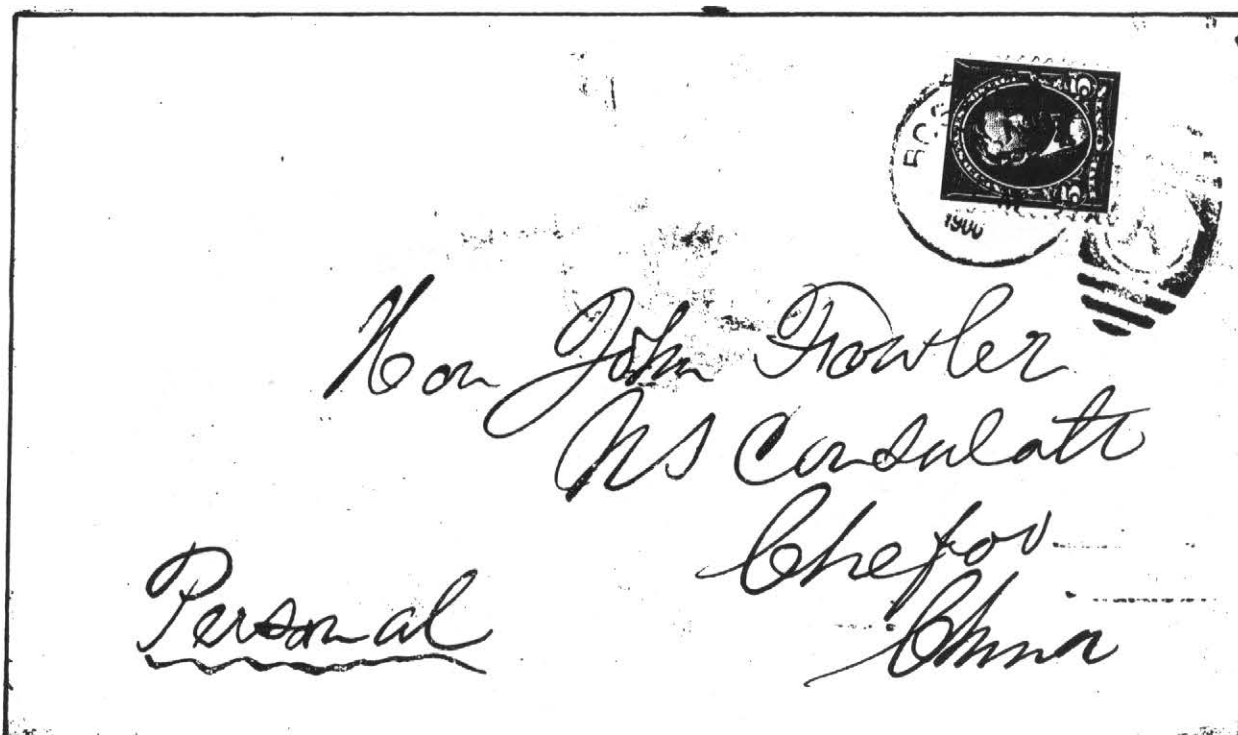 1900
Hon John Fowler
US Consulate
Chefoo
China
Personal